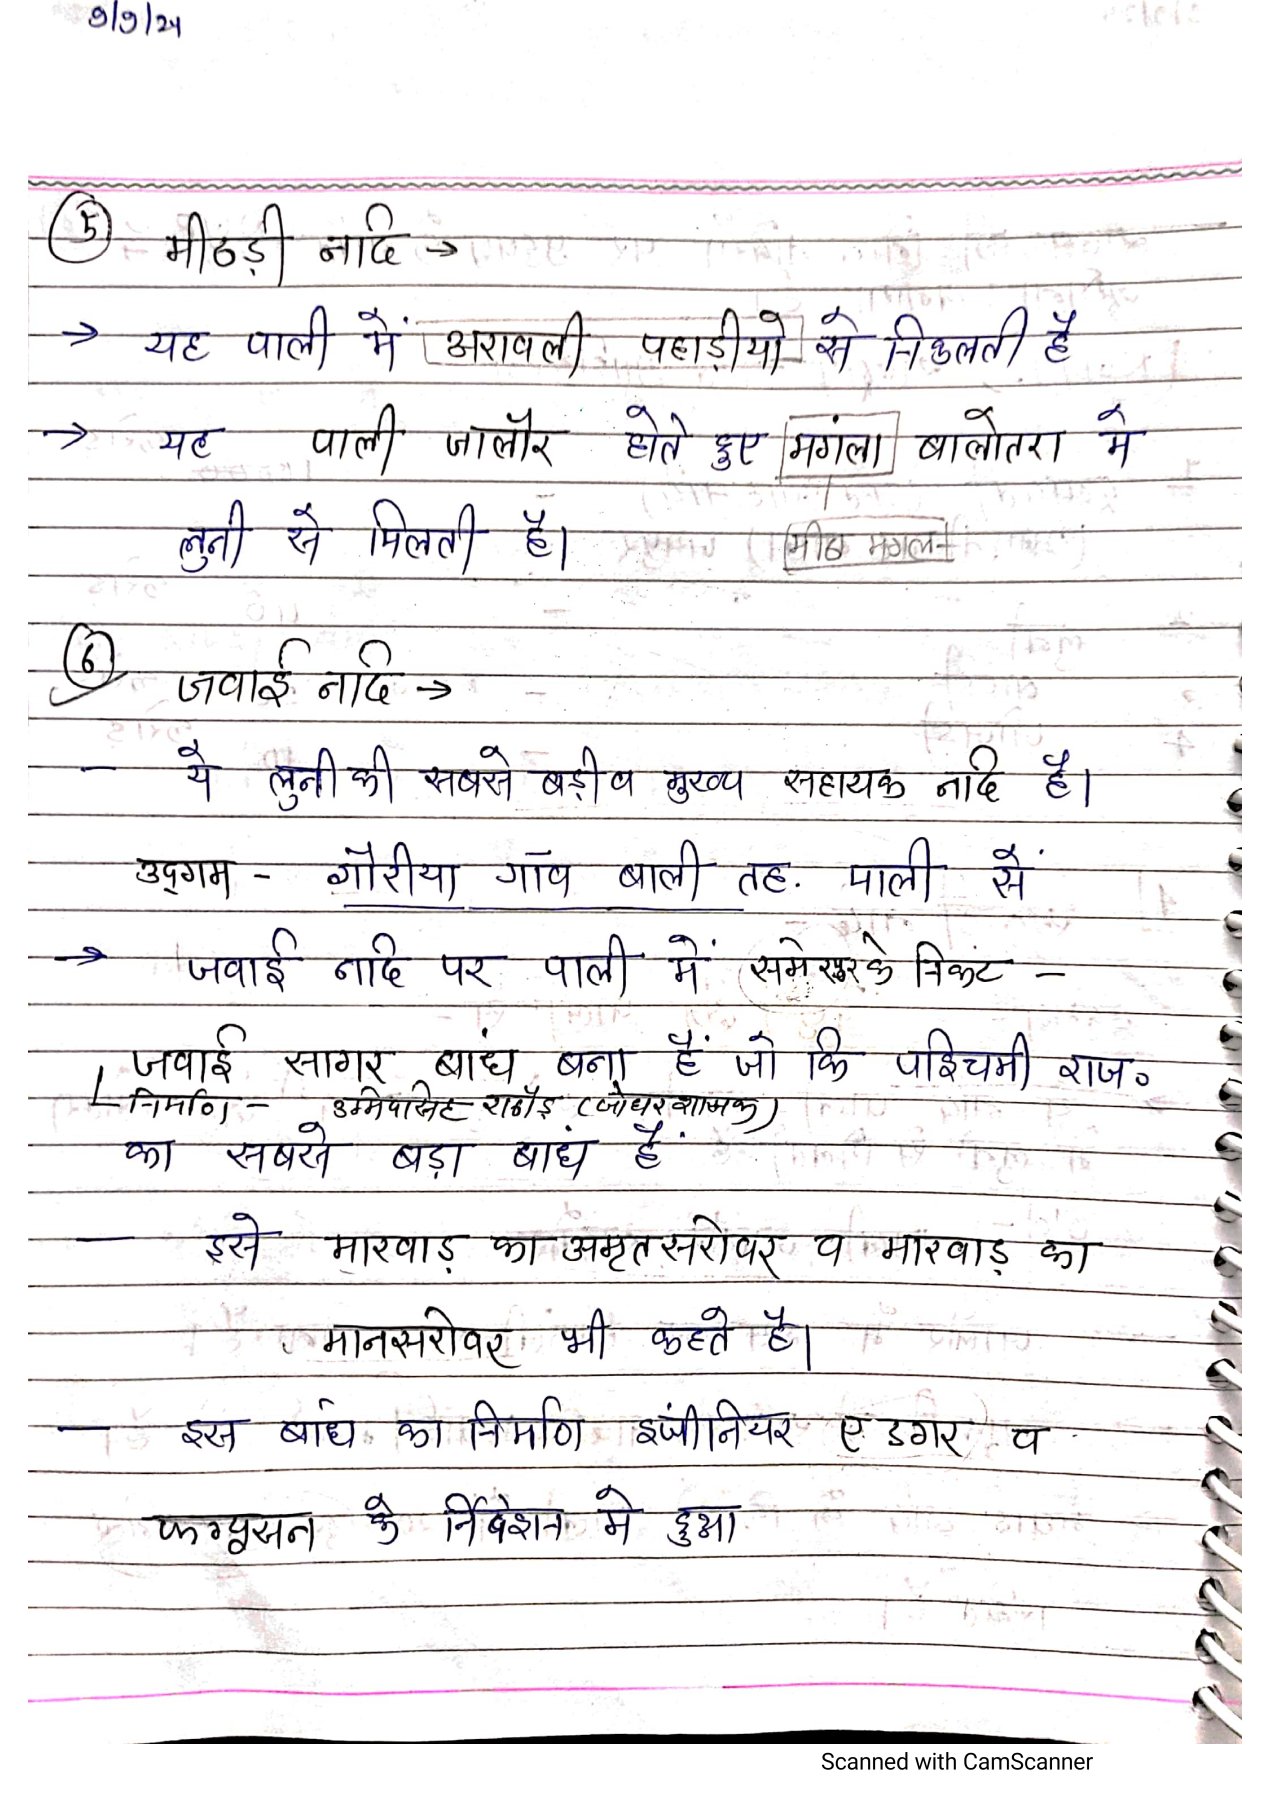 9/9/24
5 मीठड़ी नदि →
→ यह पाली में अरावली पहाड़ीयो से निकलती है
→ यह पाली जालौर होते हुए मगंला बालोतरा मे
लुनी से मिलती है।
मीठ मगल
6 जवाई नदि →
– ये लुनी की सबसे बड़ी व मुख्य सहायक नदि है।
उद्गम – गौरीया गॉव बाली तह. पाली सें
→ जवाई नदि पर पाली में के निकट –
जवाई सागर बांध बना हैं जो कि पश्चिमी राज॰
निर्माण – उम्मेदसिंह राठौड़ (जोधपुर शासक)
का सबसे बड़ा बाधं हैं
– इसे मारवाड़ का अमृत सरोवर व मारवाड़ का
मानसरोवर भी कहते है।
– इस बांध का निर्माण इंजीनियर ए डगर व
फग्यूसन के र्निदेशन मे हुआ
Scanned with CamScanner